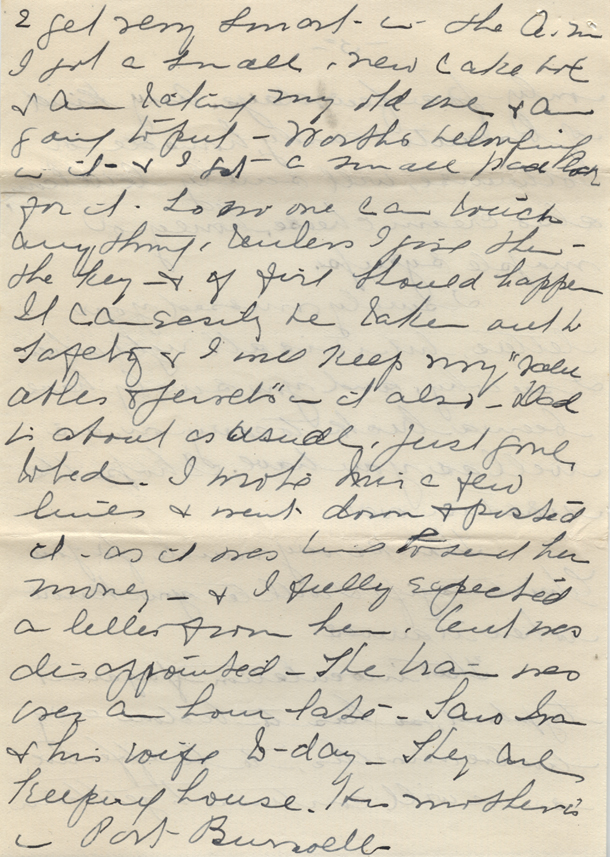 2 get very smart - in the A.M
I got a small, new cake box
& am taking my old one & am
going to put - Worths belongings
in it - & I got - a small pad lock
for it. So no one can touch
any thing, unless I give them -
the key - & if fire should happen
It can easily be taken out to
safety & I will keep my "valu
ables & jewels" in it also - Dad
is about as usual, just gone
to bed. I wrote Mir a few
lines & went down & posted
it - as it was time to send her
money - & I fully expected
a letter from her, but was
disappointed - The train was
over an hour late - Saw Ira
& his wife to-day - They are
Keeping house. His mother is
in Port Burwell